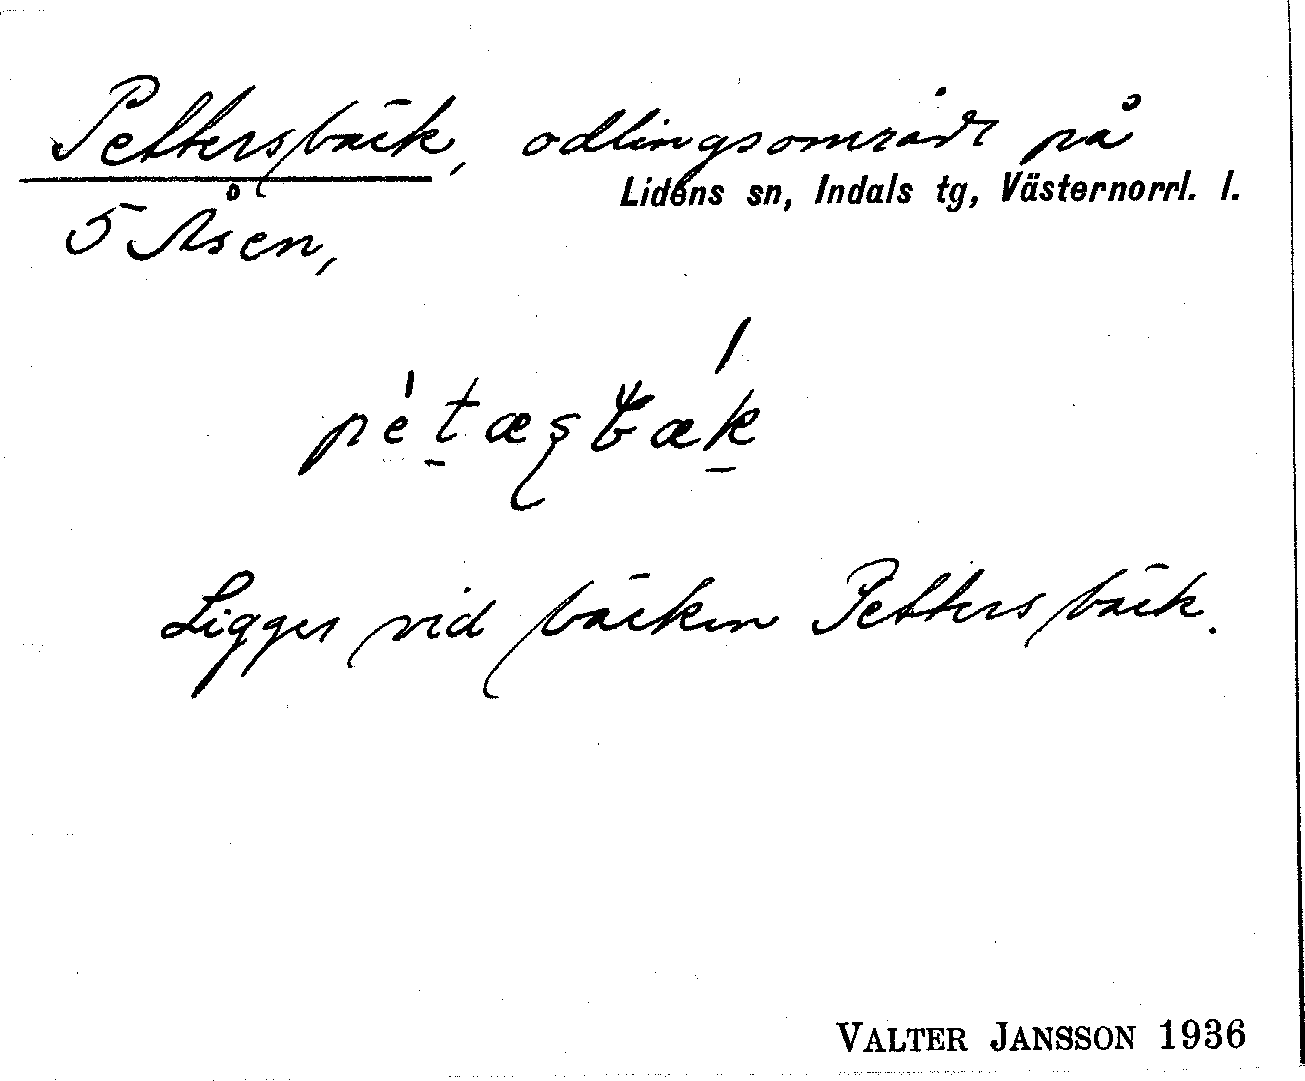 Pettersbäck, odlingsområde på
Lidens sn, Indals tg, Västernorrl. l.
5 Åsen,
Ligger vid bäcken Pettersbäck.
VALTER JANSSON 1936